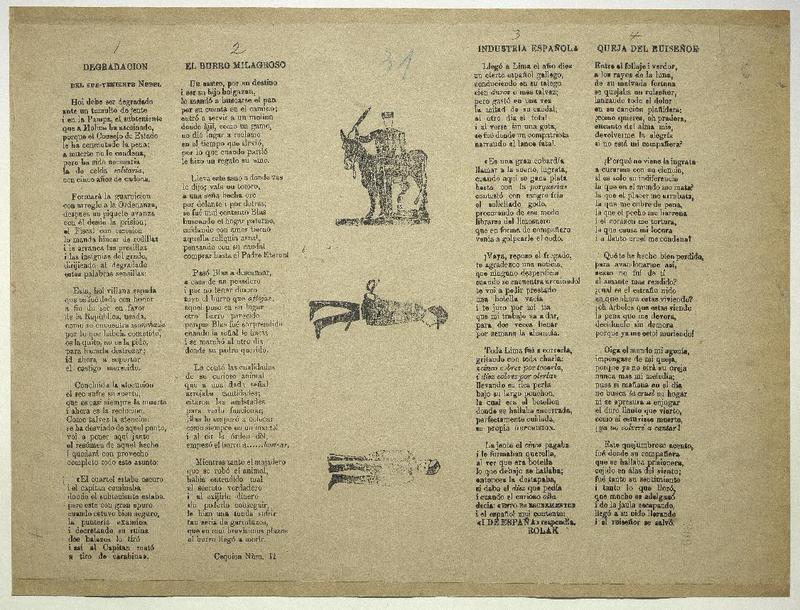 1
DEGRADACION
DEL SUB-TENIENTE NUÑEZ
Hoi debe ser degradado
ante un tumulto de jente
i en la Pampa, el subteniente
que a Molina ha asesinado,
porque el Consejo de Estado
le ha conmutado la pena;
a muerte no lo condena,
pero ha sido necesaria
la de celda solitaria,
con cinco años de cadena.
Formará la guarnicion
con arreglo a la Ordenanza,
despues un piquete avanza
con él desde la prision;
el Fiscal con
lo manda hincar de rodillas
i le arranca las presillas
i las insignias del grado,
dirijiendo al degradado
estas palabras sencillas:
Esta, hoi villana espada
que te fué dada con honor
a fin de ser en favor
de la República, usada,
como se encuentra manchada
por lo que habeis cometido,
os la quito, no os la pido,
para hacerla destrozar;
id ahora a soportar
el castigo merecido.
Concluida la alocucion
el reo sufre su suerte,
que es casi siempre la muerte
i ahora es la reclusion.
Como talvez la atencion
se ha desviado de aquel punto,
voi a poner aquí junto
el resúmen de aquel hecho
i quedará con provecho
completo todo este asunto:
«El cuartel estaba oscuro
i el capitan caminaba
donde el subteniente estaba
pero este con gran apuro
cuando estuvo bien seguro,
la puntería examina
i decretando su ruina
dos balazos le tiró
i así al Capitan mató
a tiro de carabina».
2
EL BURRO MILAGROSO
Un sastre, por su destino
i ser su hijo holgazan,
lo mandó a buscarse el pan
por su cuenta en el camino;
entró a servir a un molino
donde ájil, como un gamo,
no dió lugar a reclamo
en el tiempo que sirvió,
por lo que cuando partió
le hizo un regalo su amo.
Lleva este asno a donde vas
le dijo; vale un tesoro,
a una seña hecha oro
por delante i por detras;
se fué mui contento Blas
buscando el hogar paterno,
cuidando con amor tierno
aquella reliquia asnal,
pensando con su caudal
comprar hasta el Padre Eterno!
Pasó Blas a descansar,
a casa de un posadero
i por no tener dinero
tuvo el burro que aflojar,
aquel puso en su lugar
otro burro parecido
porque Blas fué sorprendido
cuando la señal le hacia
i se marchó al otro dia
donde su padre querido.
Le contó las cualidades
de su curioso animal
que a una dada señal
arrojaba cantidades;
citaron las amistades
para verlo funcionar;
Blas lo empezó a colocar
como siempre en un mantel
i al oir la órden de él,
empezó el burro a......
Mientras tanto el posadero
que se robó el animal,
habia entendido mal
el secreto verdadero
i al exijirle dinero
sin poderlo conseguir,
le hizo una tunda sufrir
tan seria de garrotazos,
que en mui brevísimos plazos
el burro llegó a morir.
Cequion Núm. 11
31
3
INDUSTRIA ESPAÑOLA
Llegó a Lima el año diez
un cierto español gallego,
conduciendo en su talego
cien duros o mas talvez;
pero gastó en una vez
la mitad de su caudal;
al otro dia el total
i al verse sin una gota,
se fué donde un compatriota
narrando el lance fatal.
«Es una gran cobardía
llamar a la suerte, ingrata,
cuando aquí se gana plata
hasta con la porquería»
contestó con sangre fria
el solicitado godo,
procurando de ese modo
librarse del limosnero
que en forma de compañero
venia a golpearle el codo.
¡Vaya, repuso el fregado,
te agradezco una noticia,
que ninguno desperdicia
cuando se encuentra arruinado!
te voi a pedir prestado
una botella vacia
i te juro por mi tia
que mi trabajo va a dar,
para dos veces llenar
por semana la alcancía.
Toda Lima fué a correrla,
gritando con toda charla:
¡cinco cobres por tocarla,
i diez cobres por olerla!
llevando su rica perla
bajo su largo ponchon,
la cual era el botellon
donde se hallaba encerrada,
perfectamente cuidada,
su propia
La jente el cinco pagaba
i le formaban querella,
al ver que era botella
lo que debajo se hallaba;
entonces la destapaba,
si daba el diez que pedia
i cuando el curioso olia
decia: «ESTO ES ESCREMENTO»
i el español mui contento:
«¡I DE ESPAÑA» respondia.
ROLAK
4
QUEJA DEL RUISEÑOR
Entre el follaje i verdor,
a los rayos de la luna,
de su malvada fortuna
se quejaba un ruiseñor,
lanzando todo el dolor
en su cancion plañidera:
¡como quieres, oh pradera,
encanto del alma mia,
devolverme la alegría
si no está mi compañera?
¿Porqué no viene la ingrata
a curarme con su ciencia,
si es solo su indiferencia
la que en el mundo me mata?
la que el placer me arrebata,
la que me cubre de pena,
la que el pecho me barrena
i el corazon me tortura,
la que causa mi locura
i a llanto cruel me condena!
Qué te he hecho bien perdida,
para abandonarme así,
acaso no fuí de tí
el amante mas rendido?
¿cuál es el estraño nido
en que ahora estas viviendo?
¡oh Arboles que estas viendo
la pena que me devora,
decidmelo sin demora
porque ya me estoi muriendo!
Oiga el mundo mi agonía,
impóngase de mi queja,
porque ya no oirá su oreja
nunca mas mi melodia;
pues si mañana en el dia
no busca la cruel su hogar
ni se apresura a enjugar
el duro llanto que vierto,
como al estarlose muerto,
¡ya no volveré a cantar!
Este quejumbroso acento,
fué donde su compañera
que se hallaba prisionera,
cojido en alas del viento;
fué tanto su sentimiento
i tanto lo que lloró,
que mucho se adelgazó
i de la jaula escapando,
llegó a su nido llorando
i el ruiseñor se salvó.